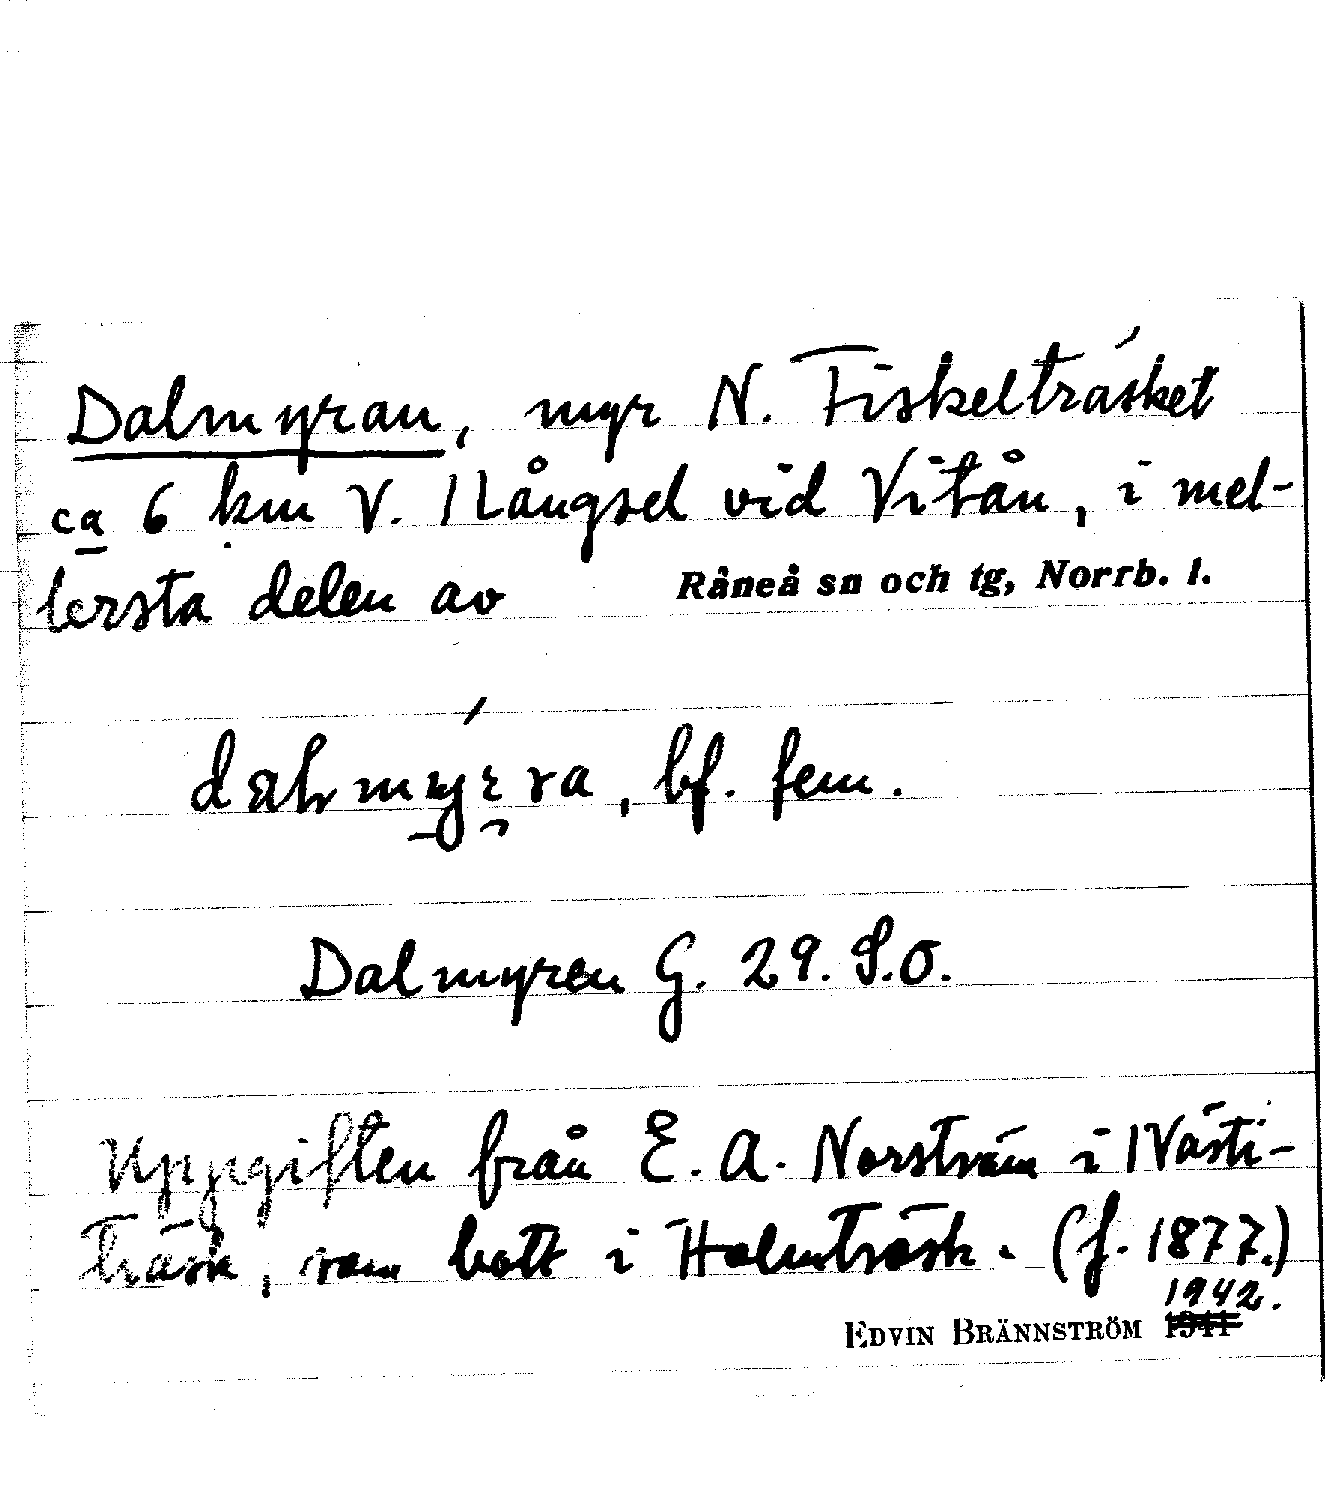 Dalmyran, myr N. Fiskelträsket
ca 6 km V. Långsel vid Vitån, i mel-
lersta delen av Råneå sn och tg, Norrb. l.
bf. fem.
Dalmyren G. 29. S.O.
Uppgiften från E. A. Norström i Västi-
träsk, som bott i Holmträsk. (f. 1877.)
1942.
EDVIN BRÄNNSTRÖM 1941